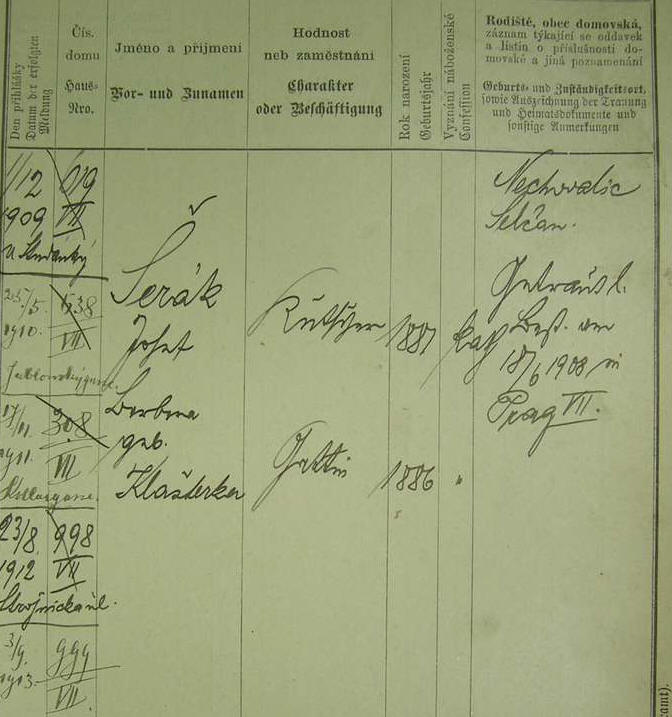 Den přihlášky
Datum der erfolgten
Meldung
Čís.
domu
Haus-
Nro.
Jméno a příjmení
Vor- und Zunamen
Hodnost
neb zaměstnání
Charakter
oder Beschäftigung
Rok narození
Geburtsjahr
Vyznání náboženské
Confession
Rodiště, obec domovská,
záznam týkající se oddavek
a listin o příslušnosti do-
movské a jiná poznamenání
Geburts- und Zuständigkeitsort,
sowie Auszeichnung der Trauung
und Heimatsdokumente und
sonstige Anmerkungen
1/12 619
1909 VII
Nechvalic
Selčan.
Šerák
Josef
Kutscher
1887
Kath
Getraut l.
Best. vom
18/6 1908 in
Prag VII.
25/5. 638
1910. VII
Barbara
geb.
Klášterka
Gattin
1886
"
17/11. 308
1911. VII
23/8. 998
1912 VII
3/9. 999
1913. VII.